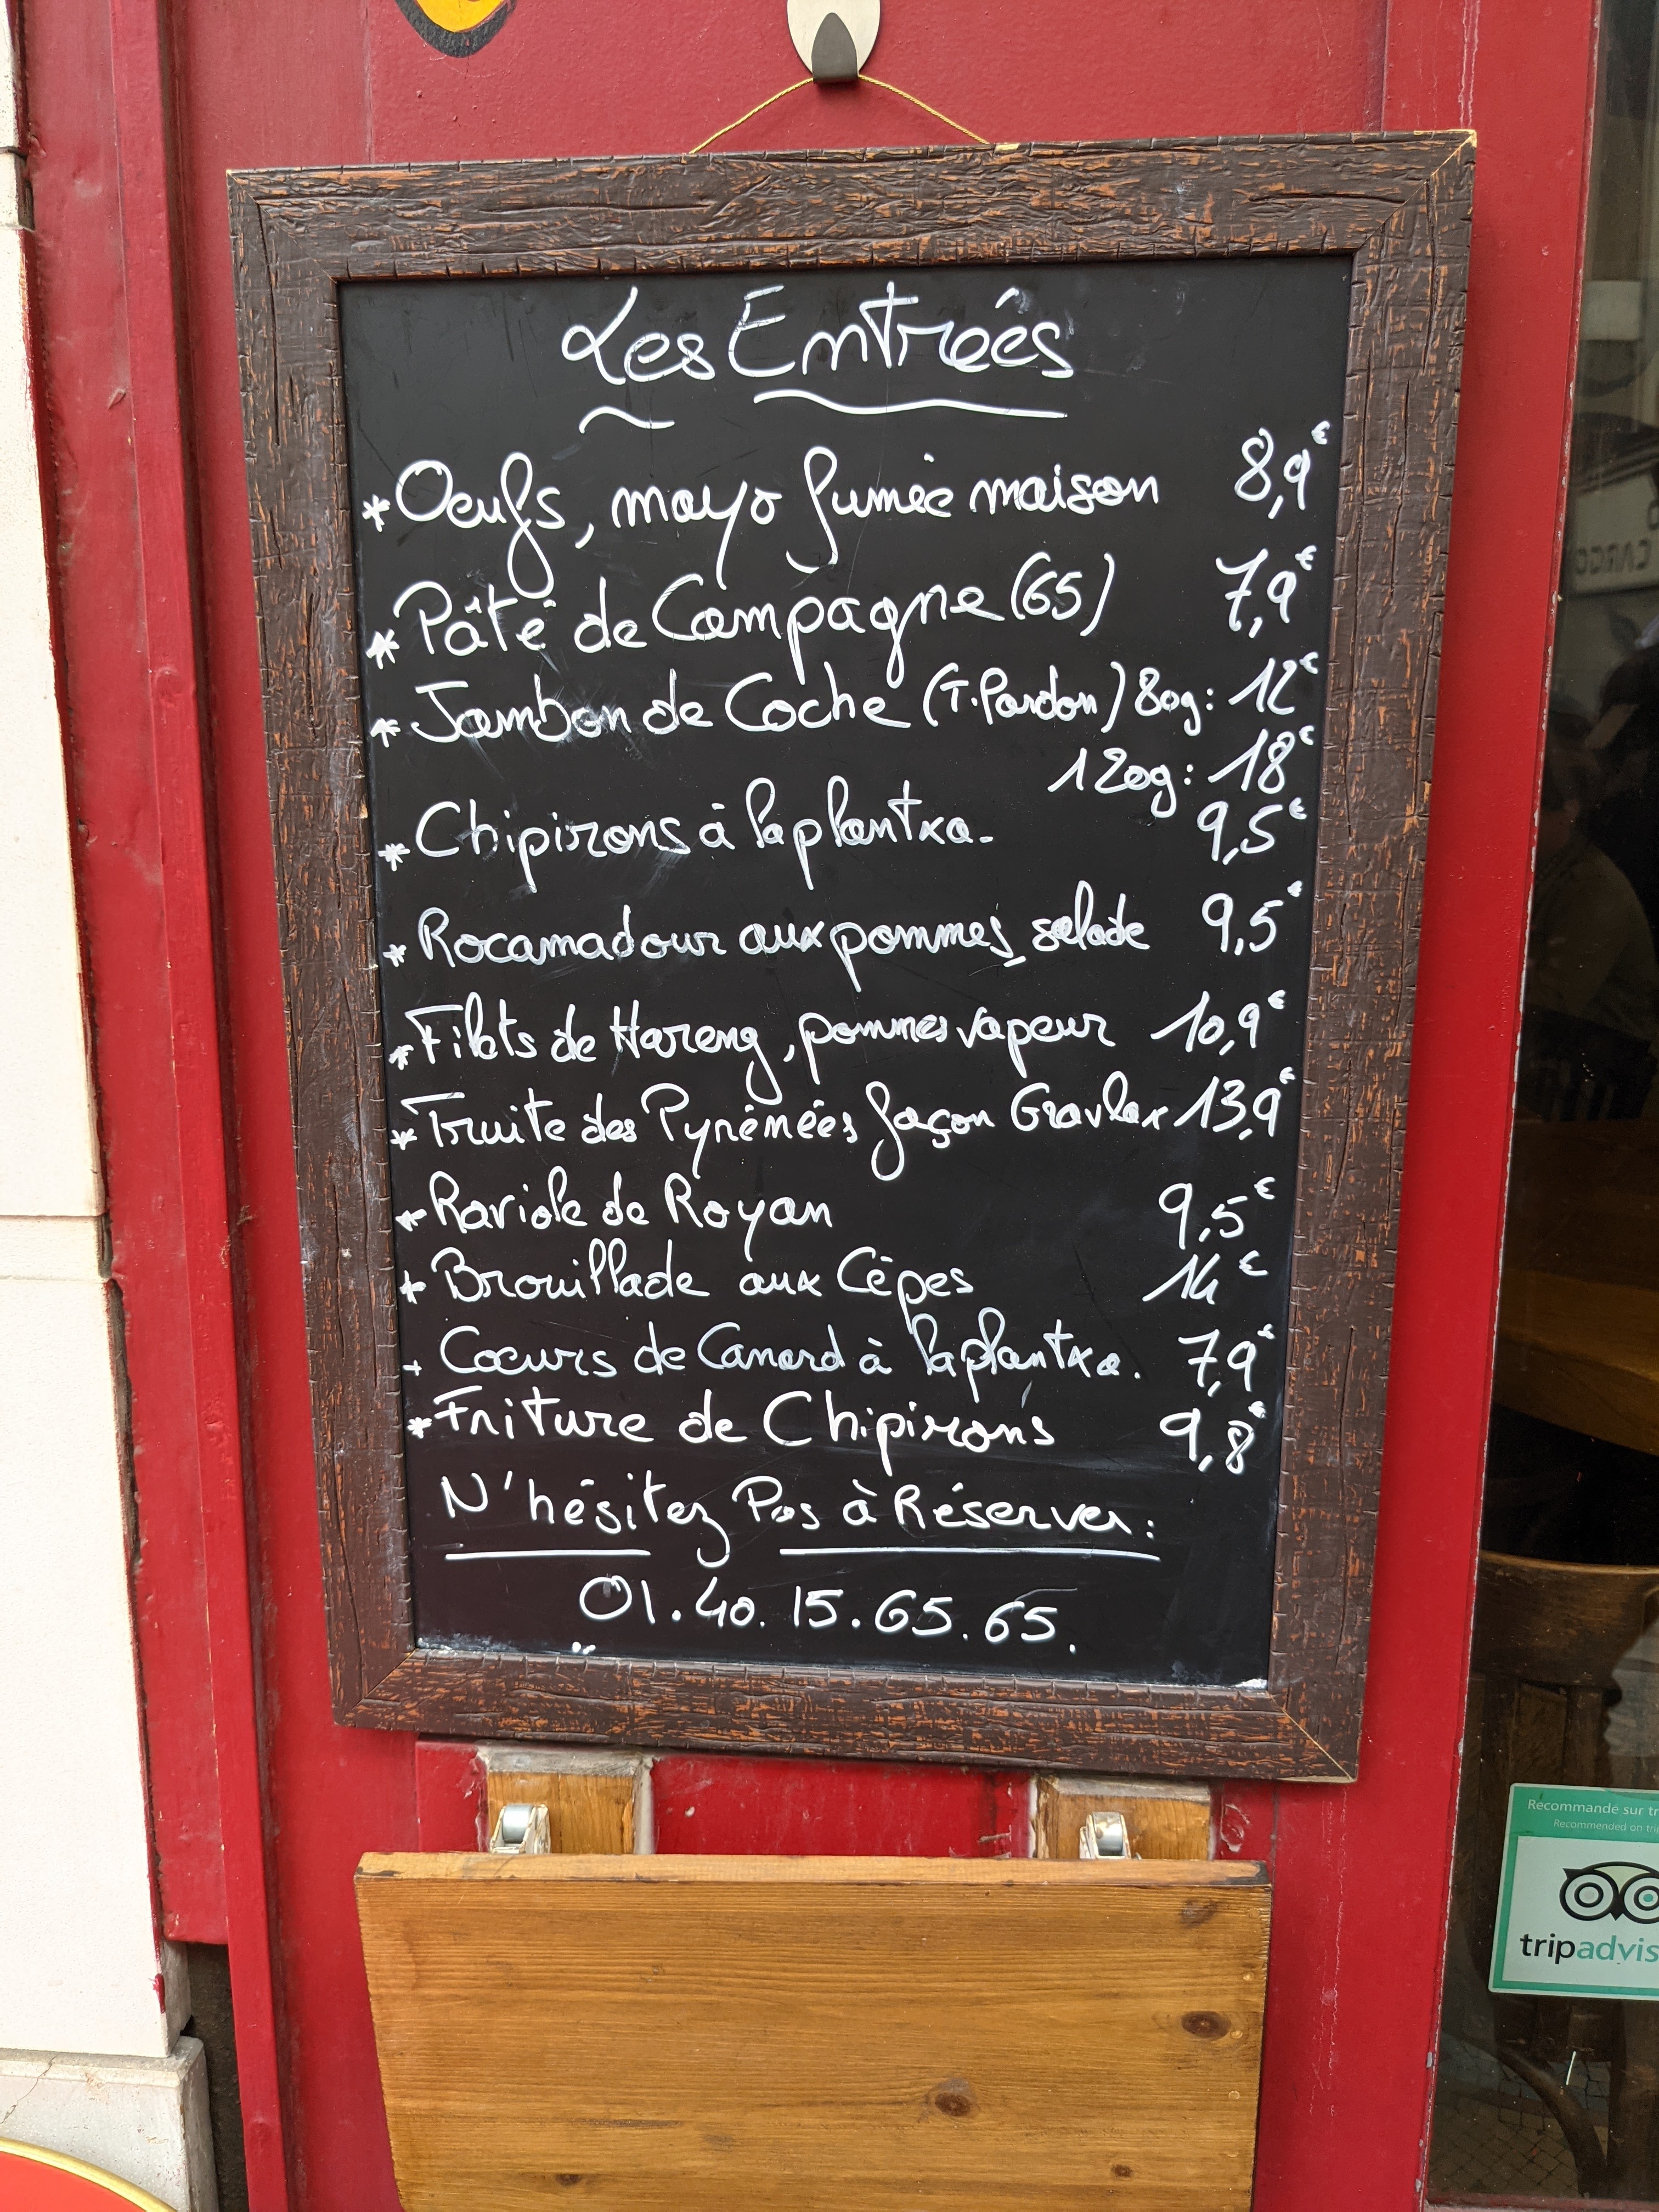 Les Entrées
* Oeufs, mayo fumée maison 8,9€
* Pâté de Campagne (65) 7,9€
* Jambon de Coche (T. Pardon) 80g: 12€
120g: 18€
* Chipirons à la plantxa. 9,5€
* Rocamadour aux pommes, salade 9,5€
* Filets de Hareng, pommes vapeur 10,9€
* Truite des Pyrénées façon Gravlax 13,9€
* Raviole de Royan 9,5€
* Brouillade aux Cèpes 14€
+ Coeurs de Canard à la plantxa. 7,9€
* Friture de Chipirons 9,8€
N'hésitez Pas à Réserver:
01.40.15.65.65.
Recommandé sur tr
Recommended on tri
tripadvis